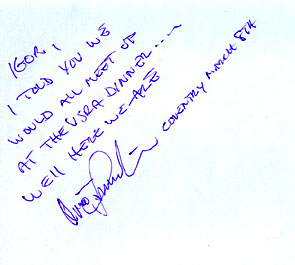 IGOR,
I TOLD YOU WE
WOULD ALL MEET UP
AT THE VSRA DINNER....
WELL HERE WE ARE
COVENTRY MARCH 8TH